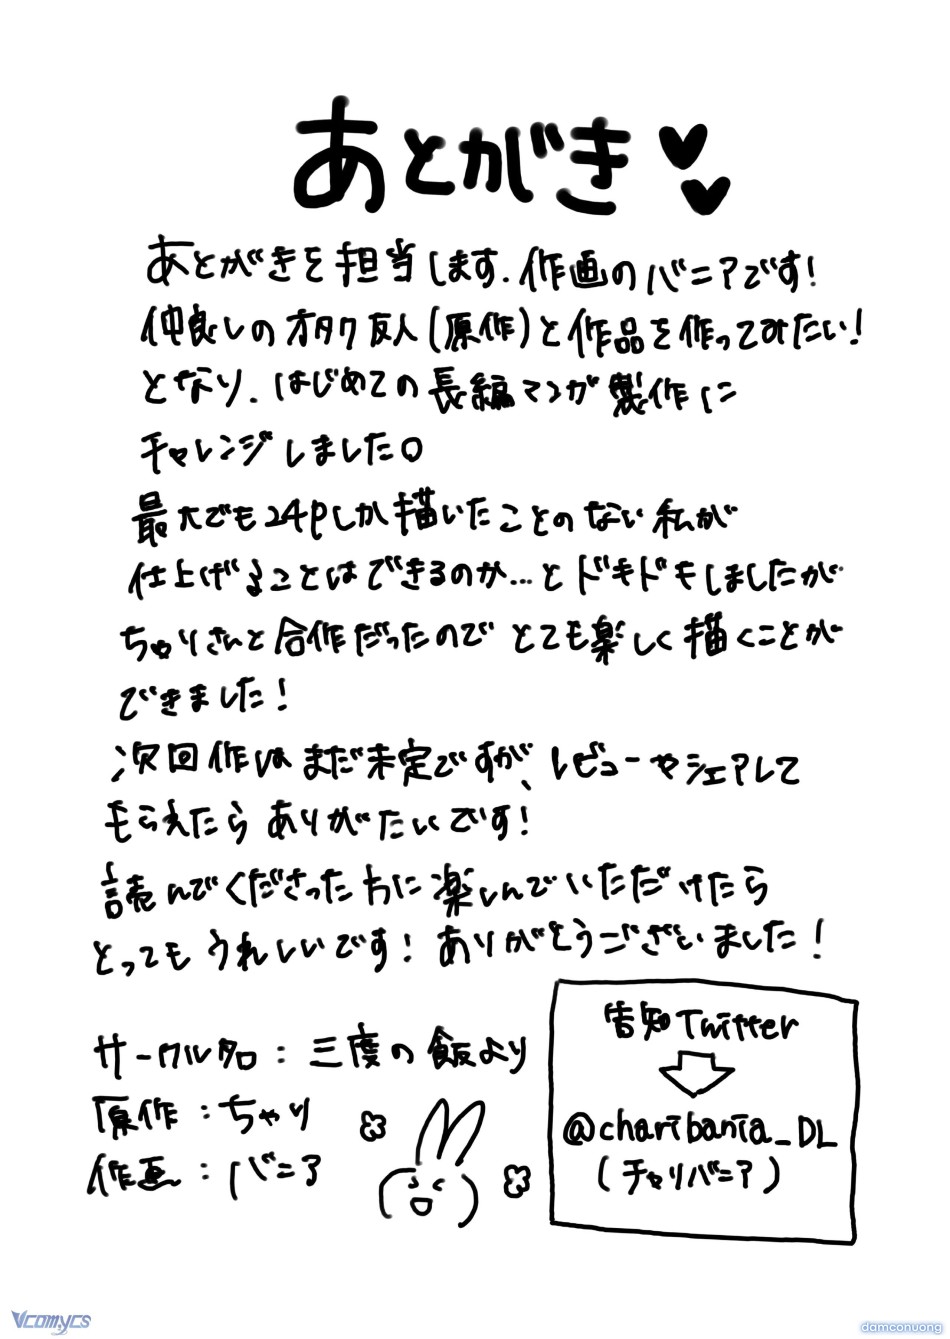 あとがき
あとがきを担当します.作画のバニアです!
仲良しのオタク友人(原作)と作品を作ってみたい!
となり.はじめての長編マンガ製作に
チャレンジしました。
最大でも24Pしか描いたことのない私が
仕上げることはできるのか...とドキドキしましたが
ちゃりさんと合作だったのでとても楽しく描くことが
できました!
次回作はまだ未定ですが、レビューやシェアして
もらえたらありがたいです!
読んでくださった方に楽しんでいただけたら
とってもうれしいです!ありがとうございました!
サークル名:三度の飯より
原作:ちゃり
作画:バニア
告知Twitter
@charibania_DL
(チャリバニア)
Vcomycs
damconuong